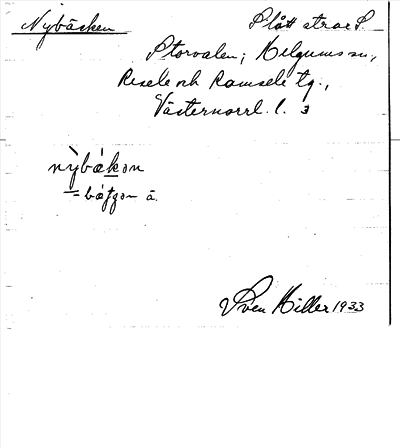 Nybäcken Slått str ao S
Storvalen; Helgums sn,
Resele och Ramsele tg.,
Västernorrl. l. 3
nỳbákon
= bátjon ä.
Sven Hiller 1933